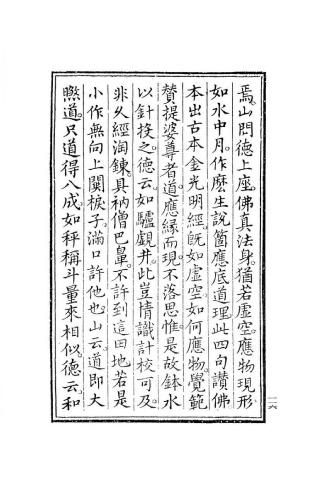 焉。山問德上座。佛真法身。猶若虛空。應物現形
如水中月。作麼生說箇應底道理。此四句讚佛
本出古本金光明經。既如虛空。如何應物。覺範
贊提婆尊者道。應緣而現。不落思惟。是故鉢水
以針投之。德云。如驢覷井。此豈情識計校可及。
非久經淘鍊。具衲僧巴鼻。不許到這田地。若是
小作無向上關棙子。滿口許他也。山云。道即大
煞道。只道得八成。如秤稱斗量來相似。德云。和
一六